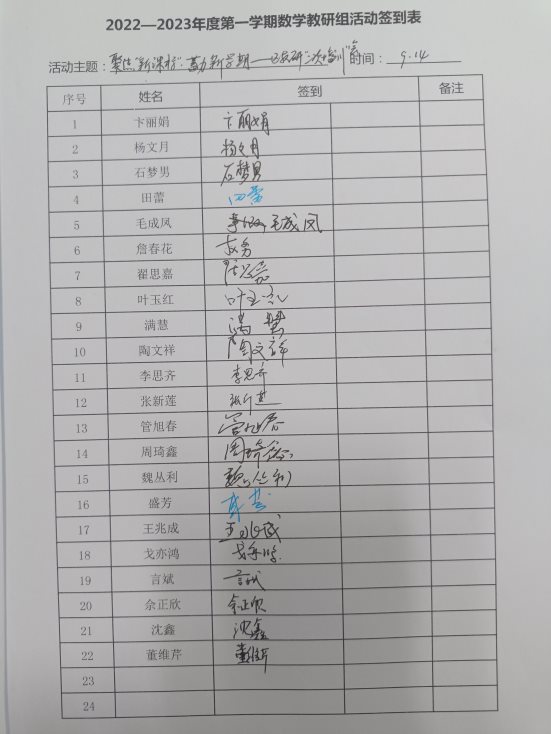 2022—2023年度第一学期数学教研组活动签到表
活动主题：聚焦"新课标"·蓄力新学期 时间：9.14
序号 姓名 签到 备注
1 卞丽娟 卞丽娟
2 杨文月 杨文月
3 石梦男 石梦男
4 田蕾 田蕾
5 毛成凤 事假 毛成凤
6 詹春花 教务
7 翟思嘉
8 叶玉红 叶玉红
9 满慧 满慧
10 陶文祥 陶文祥
11 李思齐 李思齐
12 张新莲
13 管旭春 管旭春
14 周琦鑫 周琦鑫
15 魏丛利 魏丛利
16 盛芳 盛芳
17 王兆成 王兆成
18 戈亦鸿 戈亦鸿
19 言斌 言斌
20 佘正欣 佘正欣
21 沈鑫 沈鑫
22 董维芹 董维芹
23
24